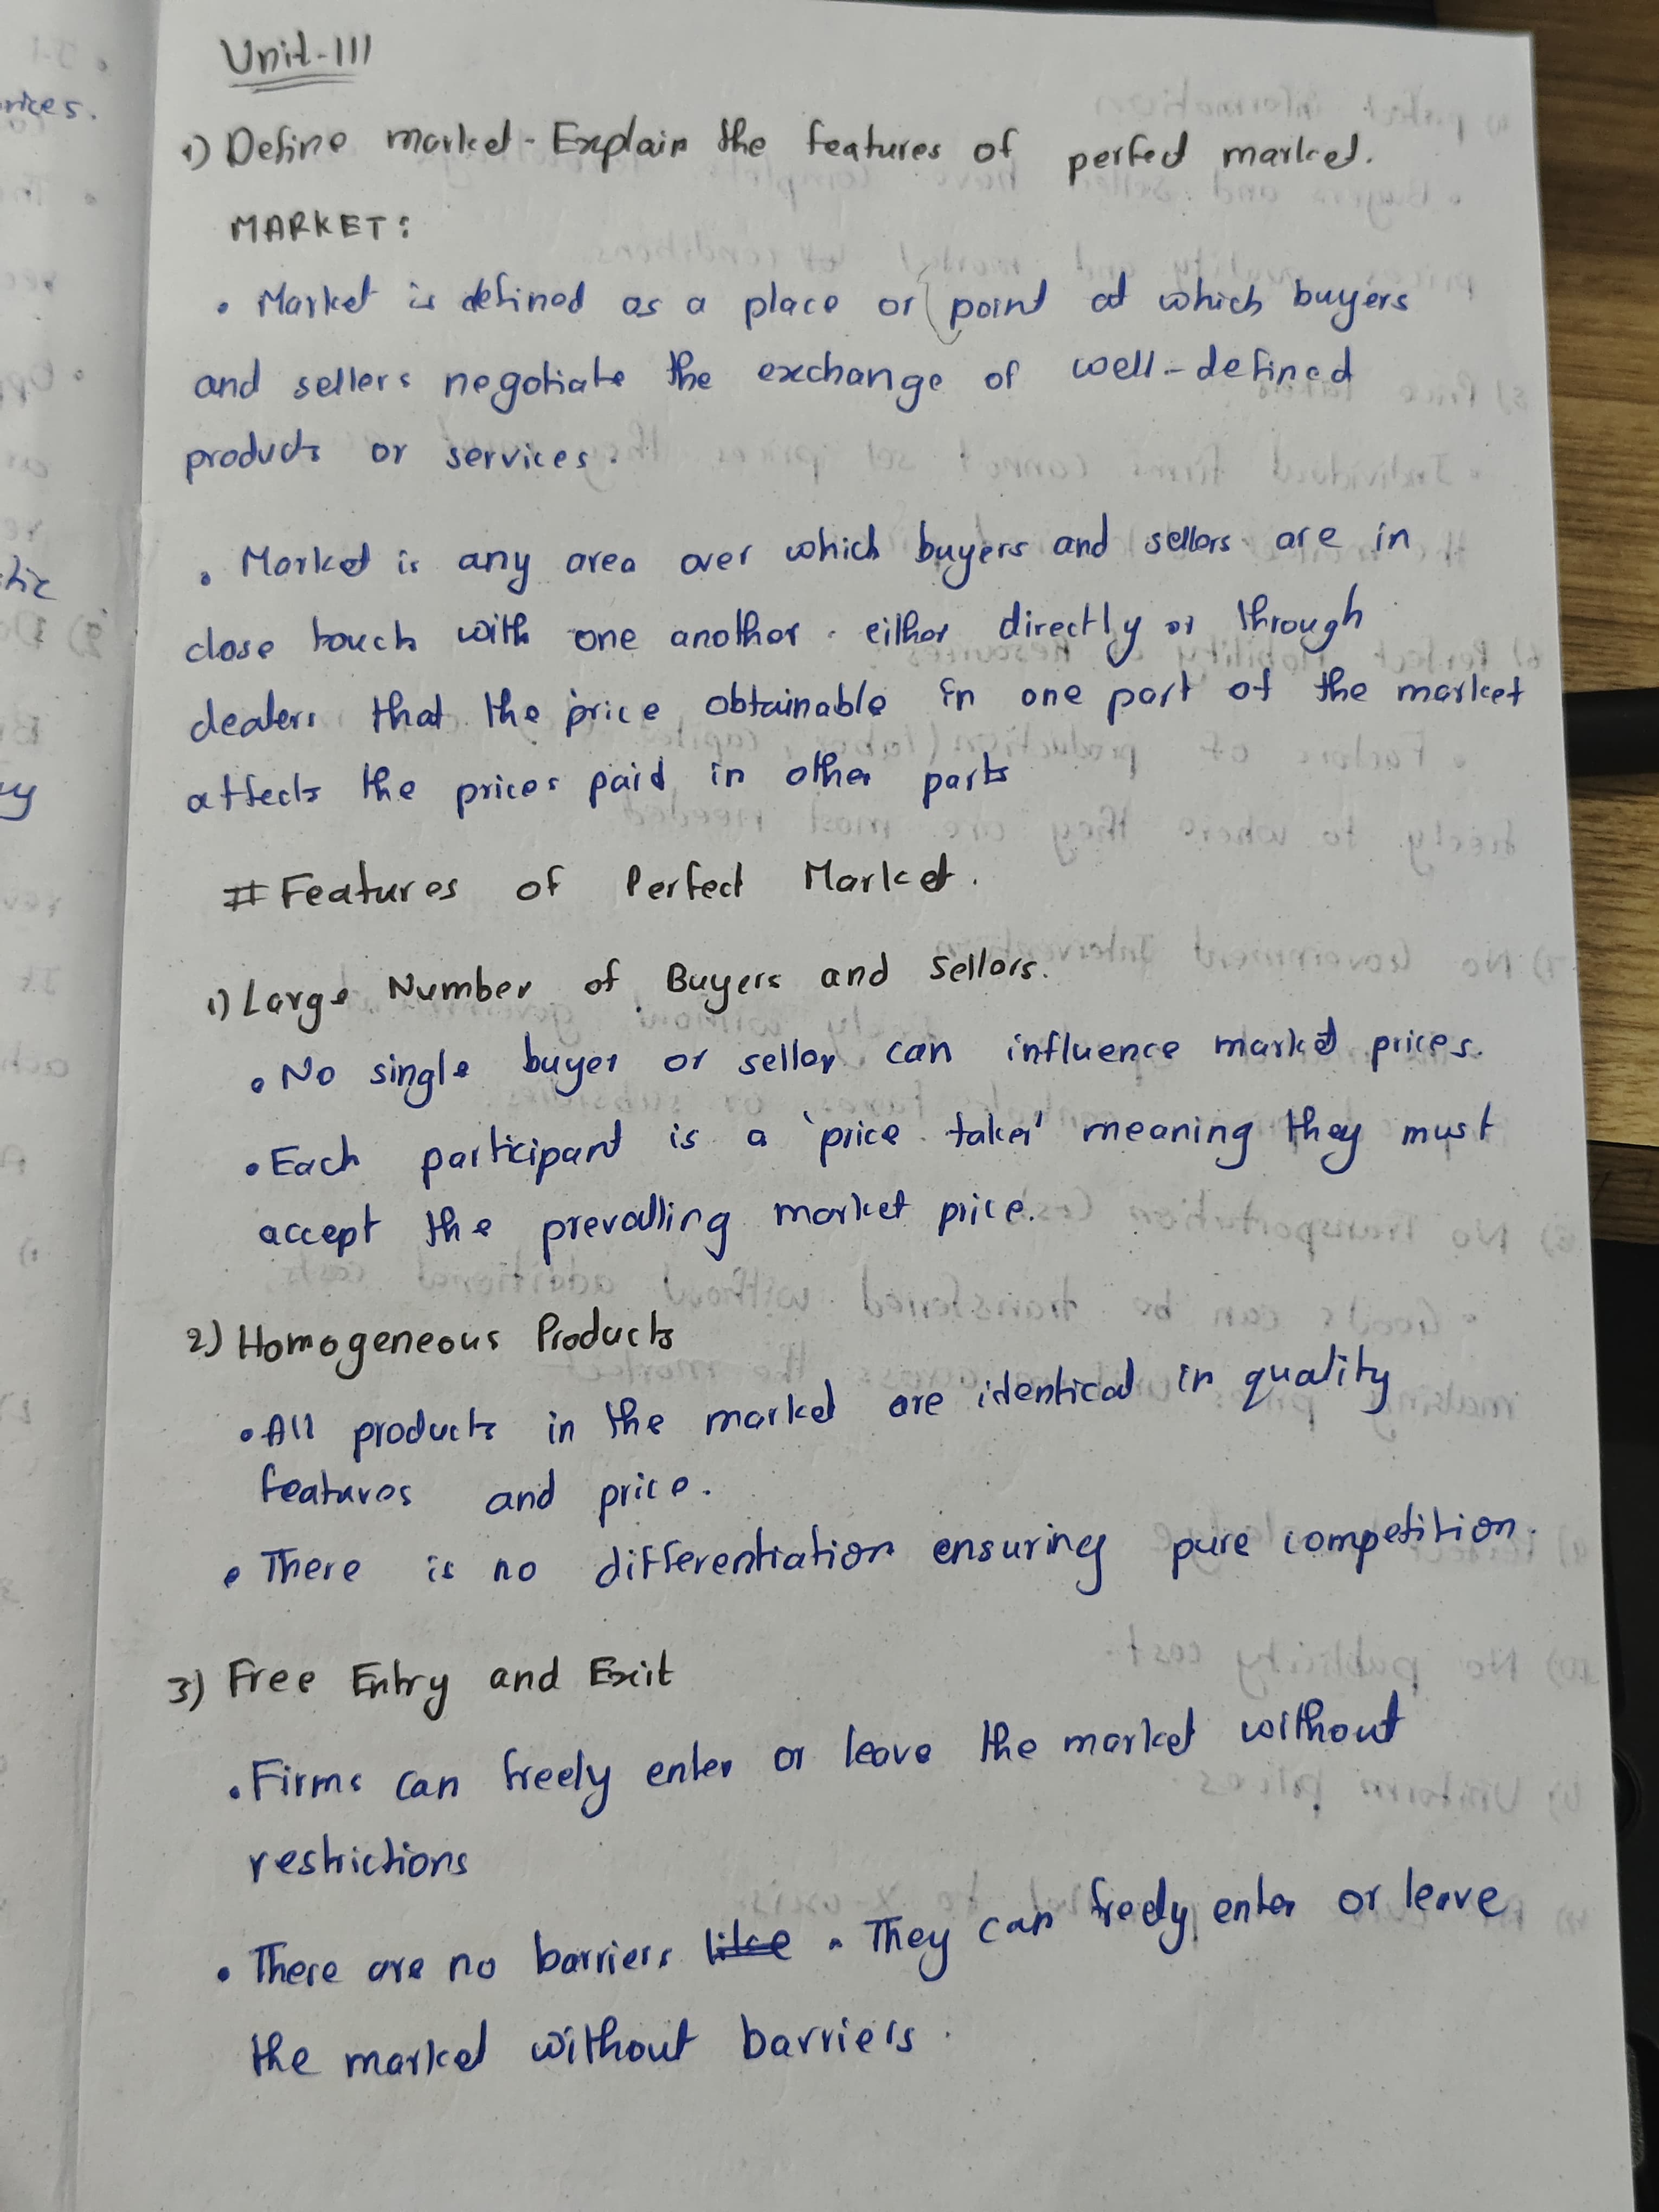 Unit-III
1) Define market - Explain the features of perfect market.
MARKET:
• Market is defined as a place or point at which buyers
and sellers negotiate the exchange of well-defined
products or services.
• Market is any area over which buyers and sellers are in
close touch with one another. either directly or through
dealers that the price obtainable in one part of the market
affects the prices paid in other parts
# Features of Perfect Market.
1) Large Number of Buyers and Sellers.
• No single buyer or seller can influence market prices.
• Each participant is a 'price taker' meaning they must
accept the prevailing market price.
2) Homogeneous Products
• All products in the market are identical in quality
features and price.
• There is no differentiation ensuring pure competition.
3) Free Entry and Exit
• Firms can freely enter or leave the market without
restrictions
• There are no barriers like . They can freely enter or leave
the market without barriers.